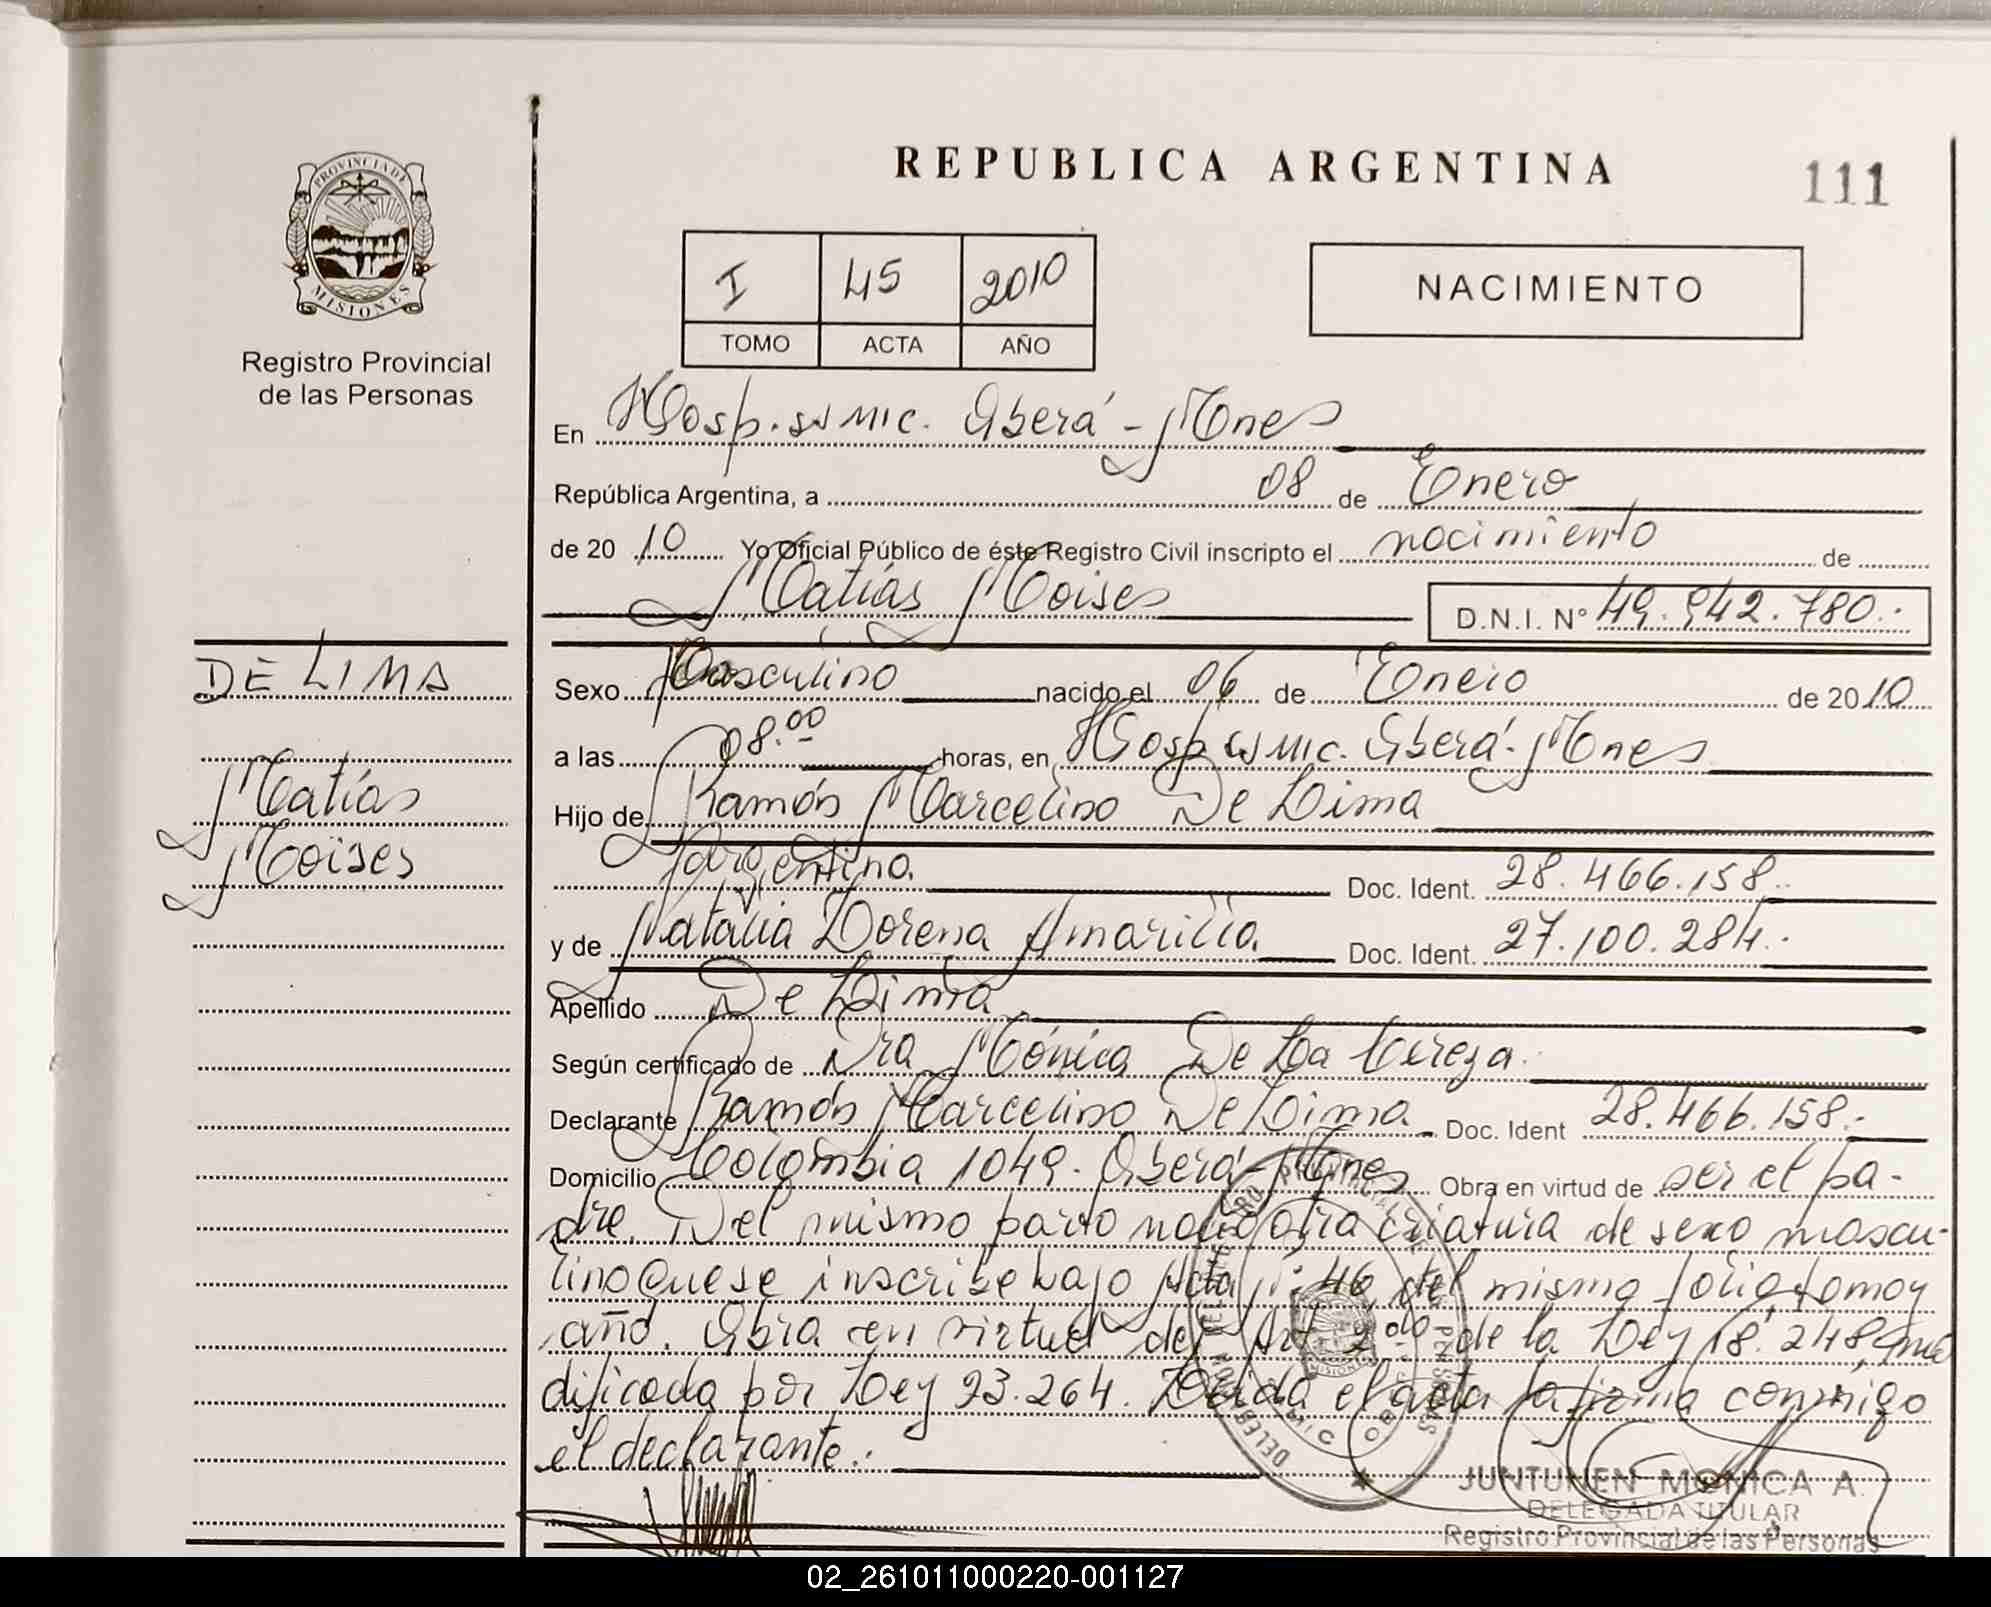 REPUBLICA ARGENTINA
111
PROVINCIA DE
MISIONES
Registro Provincial
de las Personas
I 45 2010
TOMO ACTA AÑO
NACIMIENTO
En Hosp. SAMIC. Oberá - Mnes
República Argentina, a 08 de Enero
de 20 10 Yo Oficial Público de éste Registro Civil inscripto el nacimiento de
Matías Moises
D.N.I. Nº 49.942.780.-
DE LIMA
Matías
Moises
Sexo Masculino nacido el 06 de Enero de 2010
a las 08.00 horas, en Hosp. SAMIC. Oberá - Mnes
Hijo de Ramón Marcelino De Lima
Argentino. Doc. Ident. 28.466.158.-
y de Natalia Lorena Amarilla. Doc. Ident. 27.100.284.-
Apellido De Lima
Según certificado de Dra Mónica De La Cereza.
Declarante Ramón Marcelino De Lima. Doc. Ident 28.466.158.-
Domicilio Colombia 1049. Oberá - Mnes Obra en virtud de ser el pa-
dre. Del mismo parto nació otra criatura de sexo mascu-
lino que se inscribe bajo Acta nº 46 del mismo folio, tomo y
año. Obra en virtud del Art 2do de la Ley 18.248, mo
dificada por Ley 23.264. Leída el acta la firma conmigo
el declarante.-
JUNTUNEN MONICA A.
DELEGADA TITULAR
Registro Provincial de las Personas
02_261011000220-001127